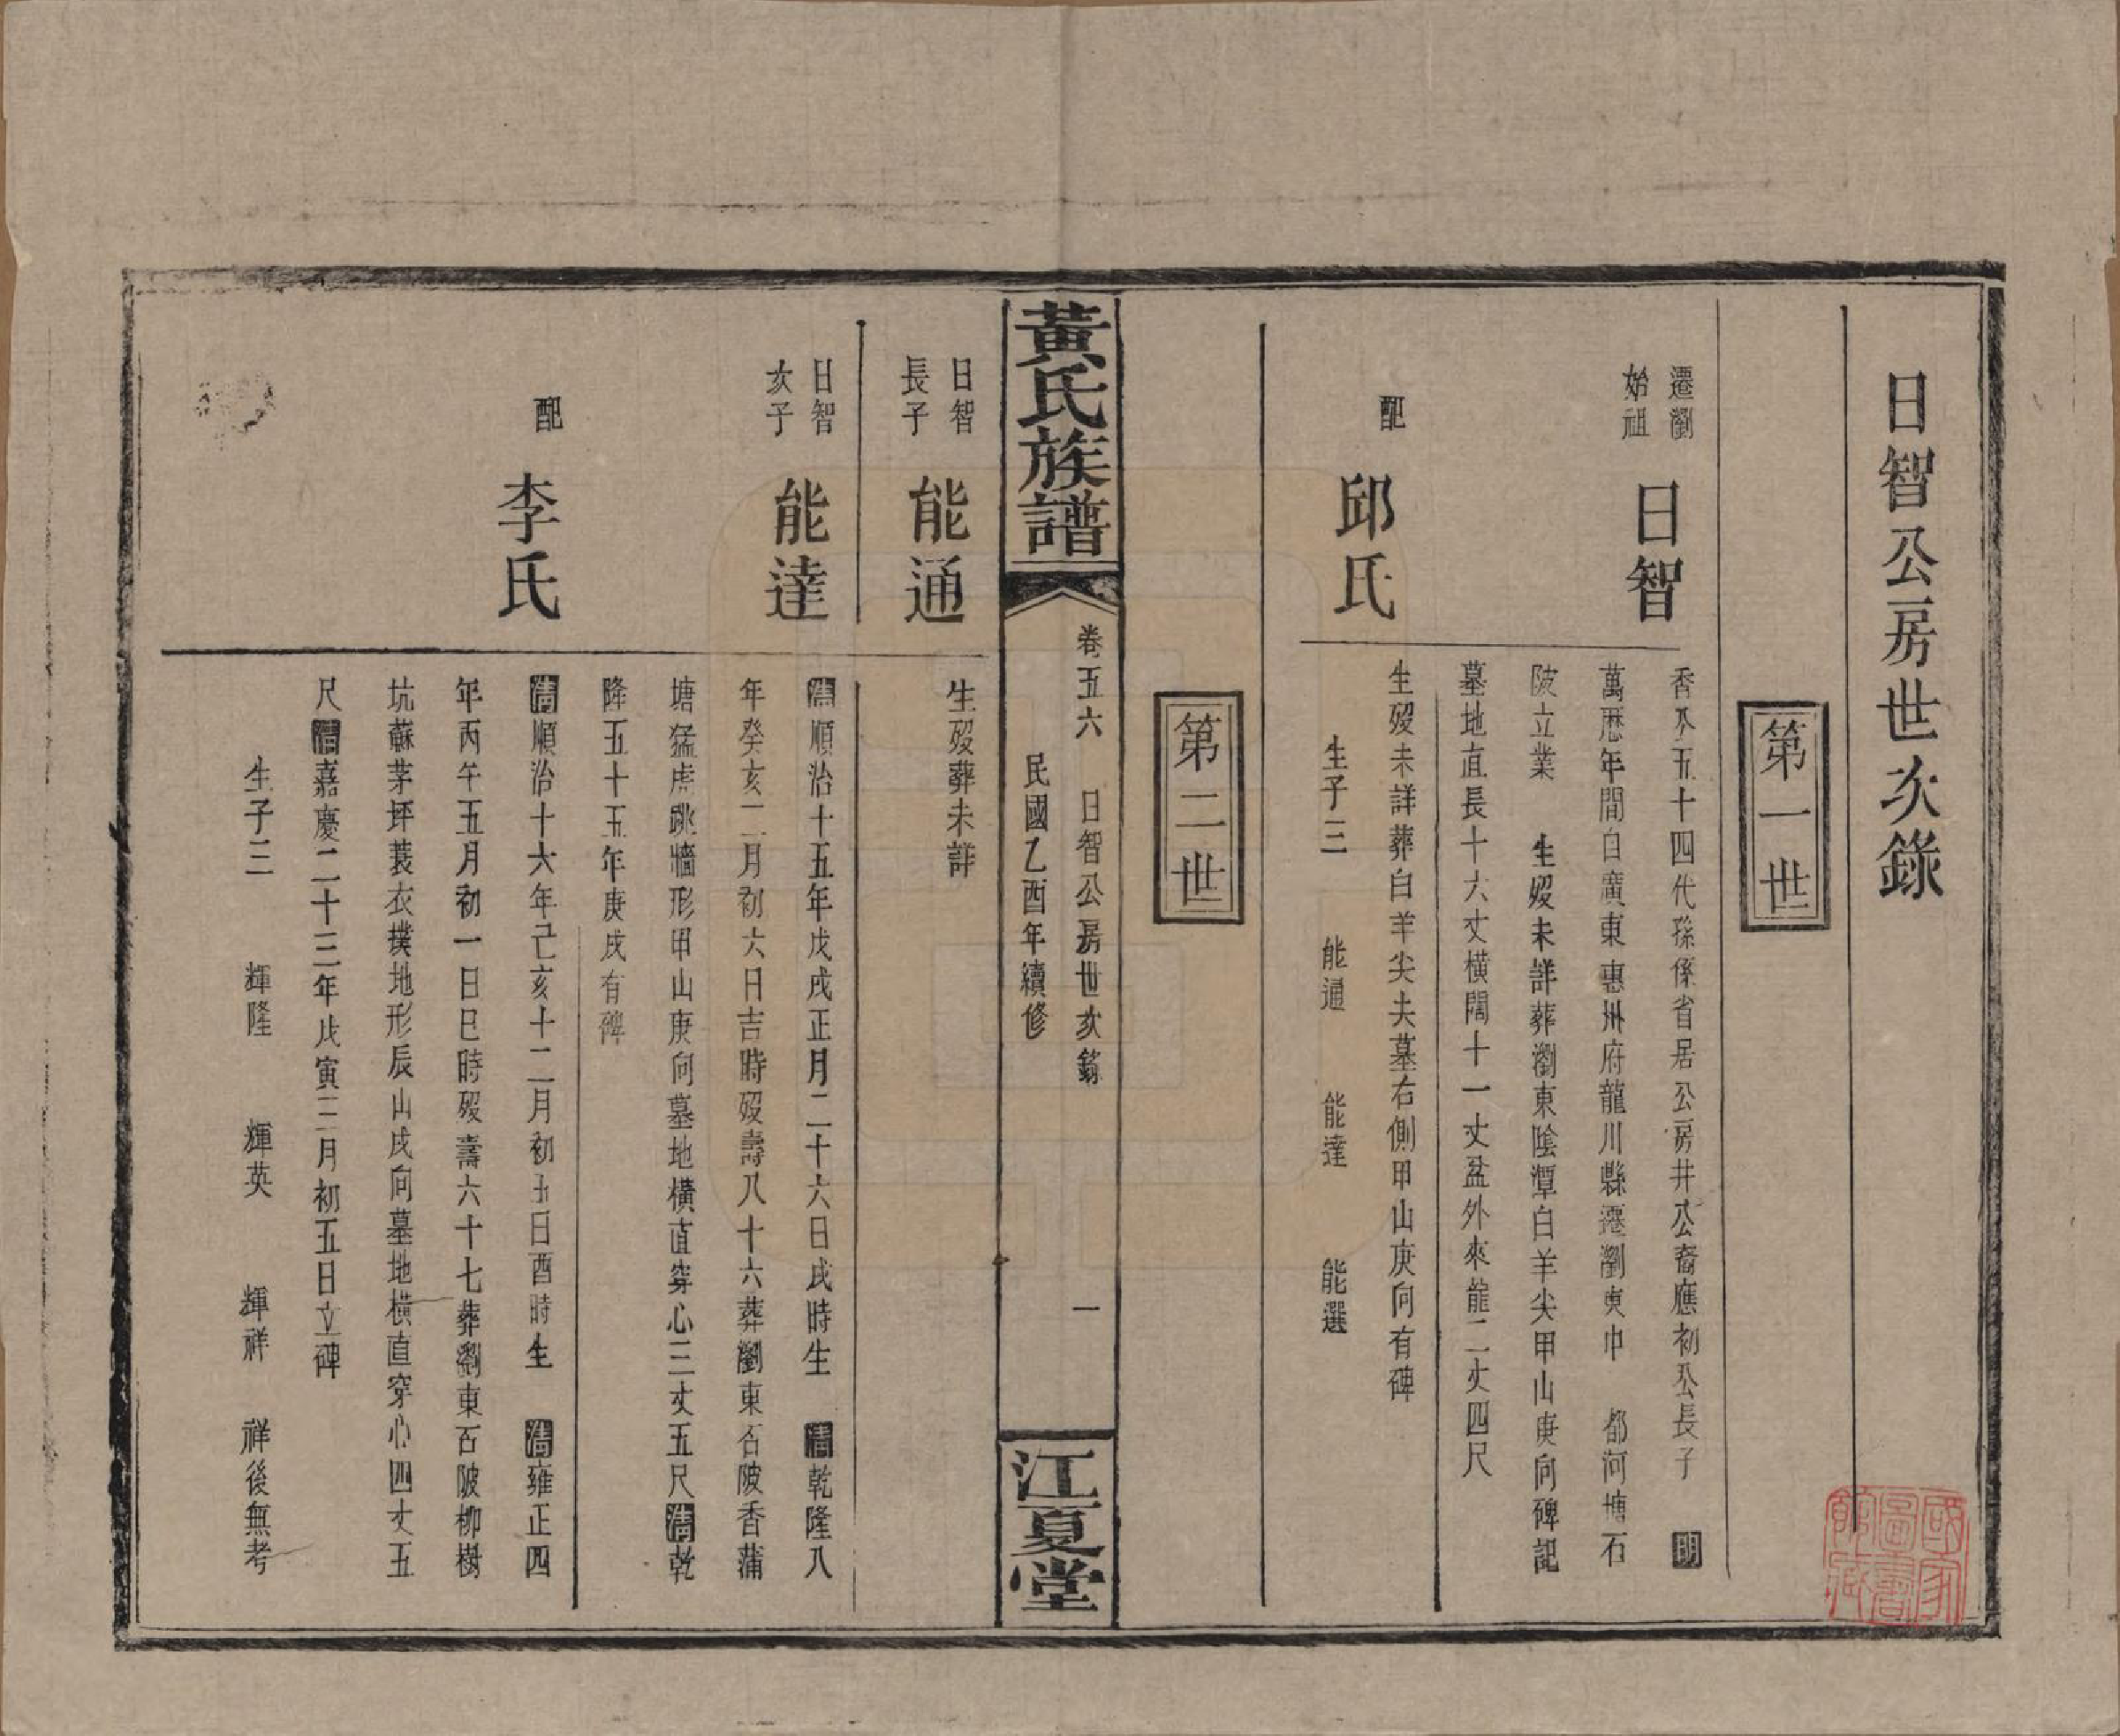 日智公房世次錄
第一世
遷瀏
始祖
日智
香公五十四代孫係省居公房井公裔應初公長子 明
萬厯年間自廣東惠州府龍川縣遷瀏東 都河塘石
陂立業 生歿未詳葬瀏東陰潭白羊尖甲山庚向碑記
墓地直長十六丈橫闊十一丈盆外來龍二丈四尺
配
邱氏
生歿未詳葬白羊尖夫墓右側甲山庚向有碑
生子三 能通 能達 能選
第二世
黃氏族譜
卷五六 日智公房世次錄 一
民國乙酉年續修
江夏堂
日智
長子
能通
生歿葬未詳
日智
次子
能達
清順治十五年戊戌正月二十六日戌時生 清乾隆八
年癸亥二月初六日吉時歿壽八十六葬瀏東石陂香蒲
塘猛虎跳牆形甲山庚向墓地橫直穿心三丈五尺清乾
隆五十五年庚戌有碑
配
李氏
清順治十六年己亥十二月初五日酉時生 清雍正四
年丙午五月初一日巳時歿壽六十七葬瀏東石陂柳樹
坑蘇茅坪蓑衣撲地形辰山戌向墓地橫直穿心四丈五
尺清嘉慶二十三年戊寅三月初五日立碑
生子三 輝隆 輝英 輝祥 祥後無考
國家
圖書
館藏